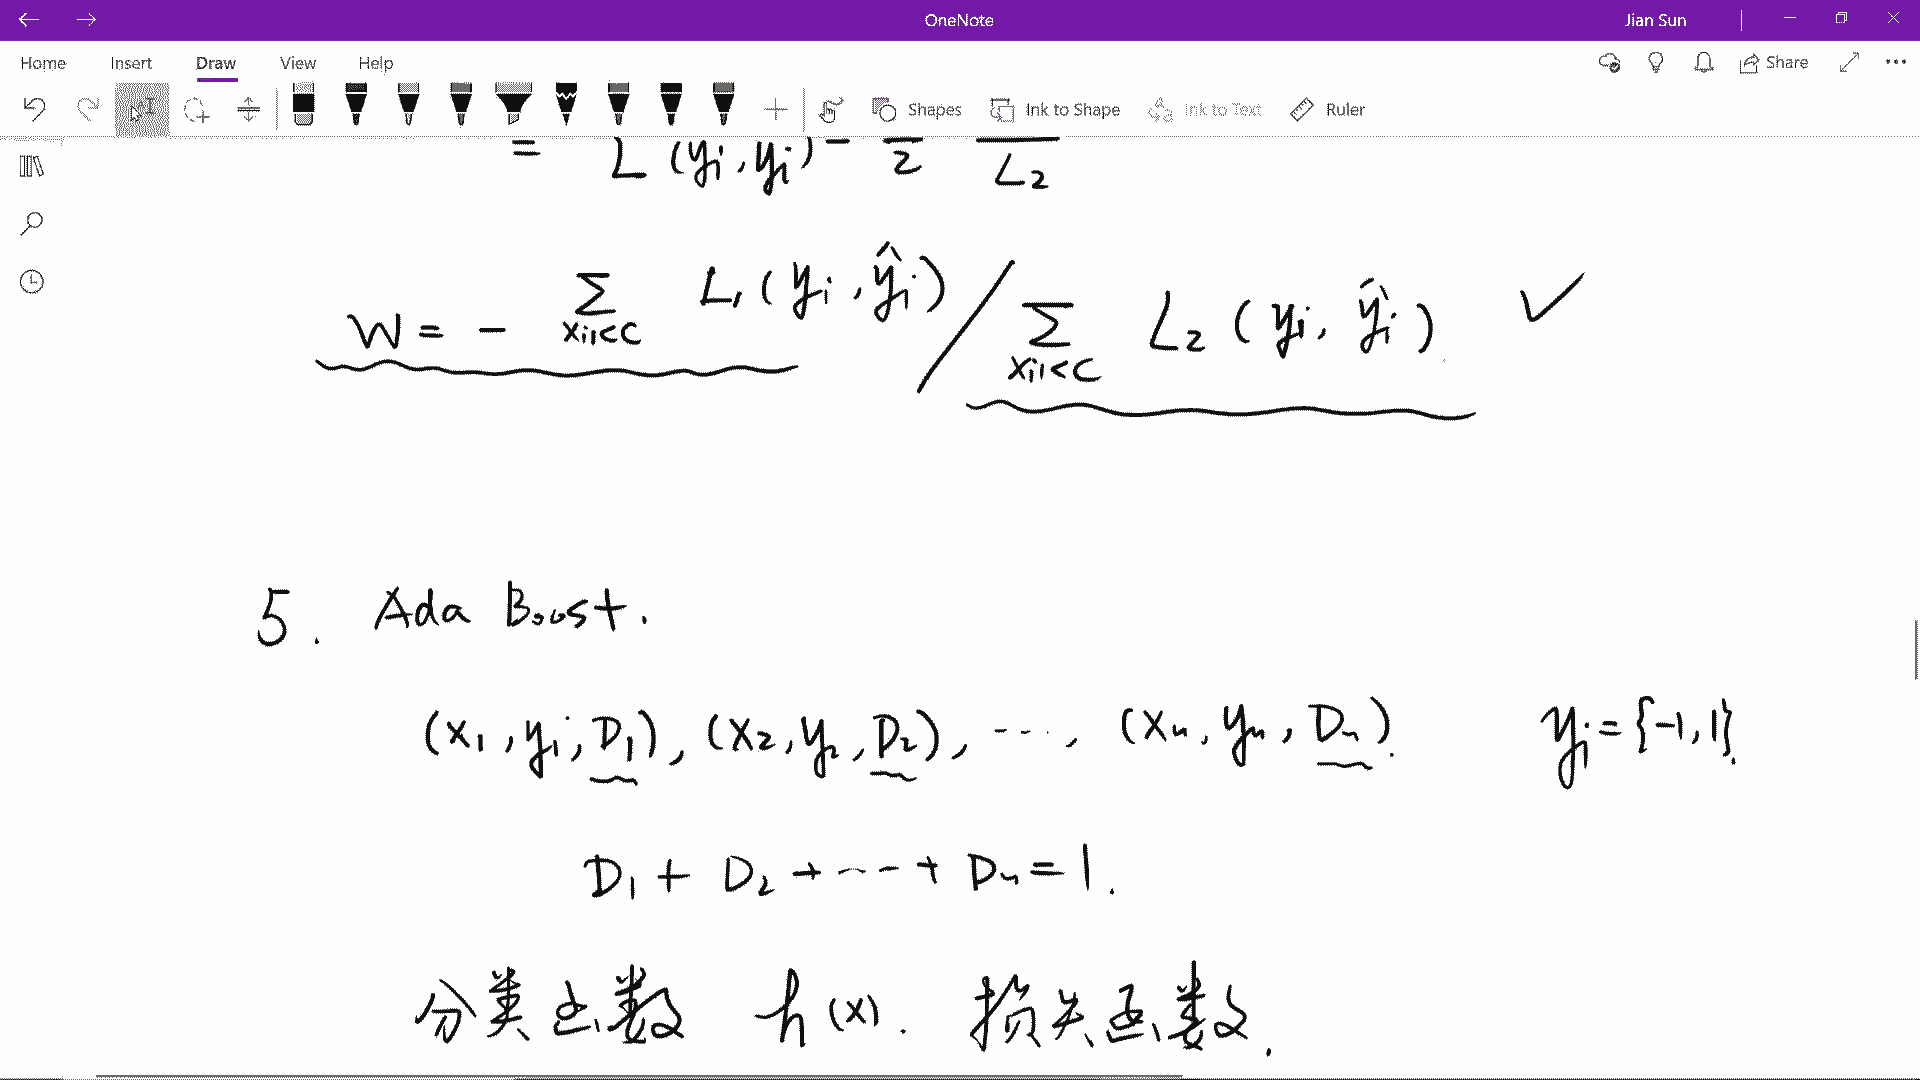 OneNote
Jian Sun
Home Insert Draw View Help
Share
Shapes Ink to Shape Ink to Text Ruler
= L(yi, yi) - 2 L2
W = - Σ xi1<c L1(yi, ŷi) / Σ xi1<c L2(yi, ŷi) ✓
5. Ada Boost.
(x1, y1, D1), (x2, y2, D2), ..., (xn, yn, Dn). yi = {-1, 1}.
D1 + D2 + ... + Dn = 1.
分类函数 h(x). 损失函数.